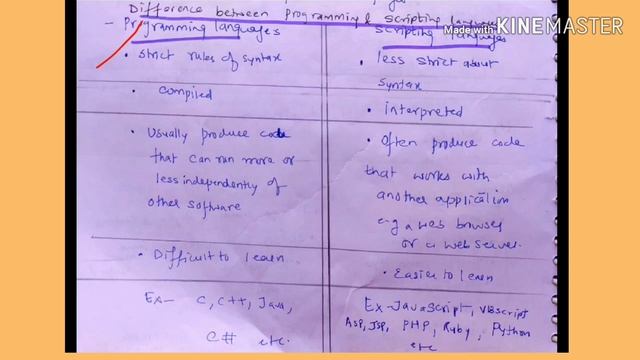 Difference between programming & scripting languages
Made with KINEMASTER
- Programming languages
scripting languages
• strict rules of syntax
• less strict about
syntax
• compiled
• interpreted
• Usually produce code
that can run more or
less independently of
other software
• Often produce code
that works with
another application
e.g a web browser
or a web server.
• Difficult to learn
• Easier to learn
Ex- C, C++, Java,
C# etc.
Ex- JavaScript, VBscript
ASP, JSP, PHP, Ruby, Python
etc